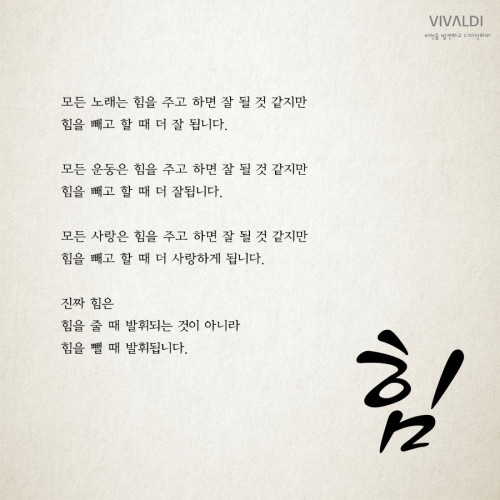 VIVALDI
모든 노래는 힘을 주고 하면 잘 될 것 같지만
힘을 빼고 할 때 더 잘 됩니다.
모든 운동은 힘을 주고 하면 잘 될 것 같지만
힘을 빼고 할 때 더 잘됩니다.
모든 사랑은 힘을 주고 하면 잘 될 것 같지만
힘을 빼고 할 때 더 사랑하게 됩니다.
진짜 힘은
힘을 줄 때 발휘되는 것이 아니라
힘을 뺄 때 발휘됩니다.
힘